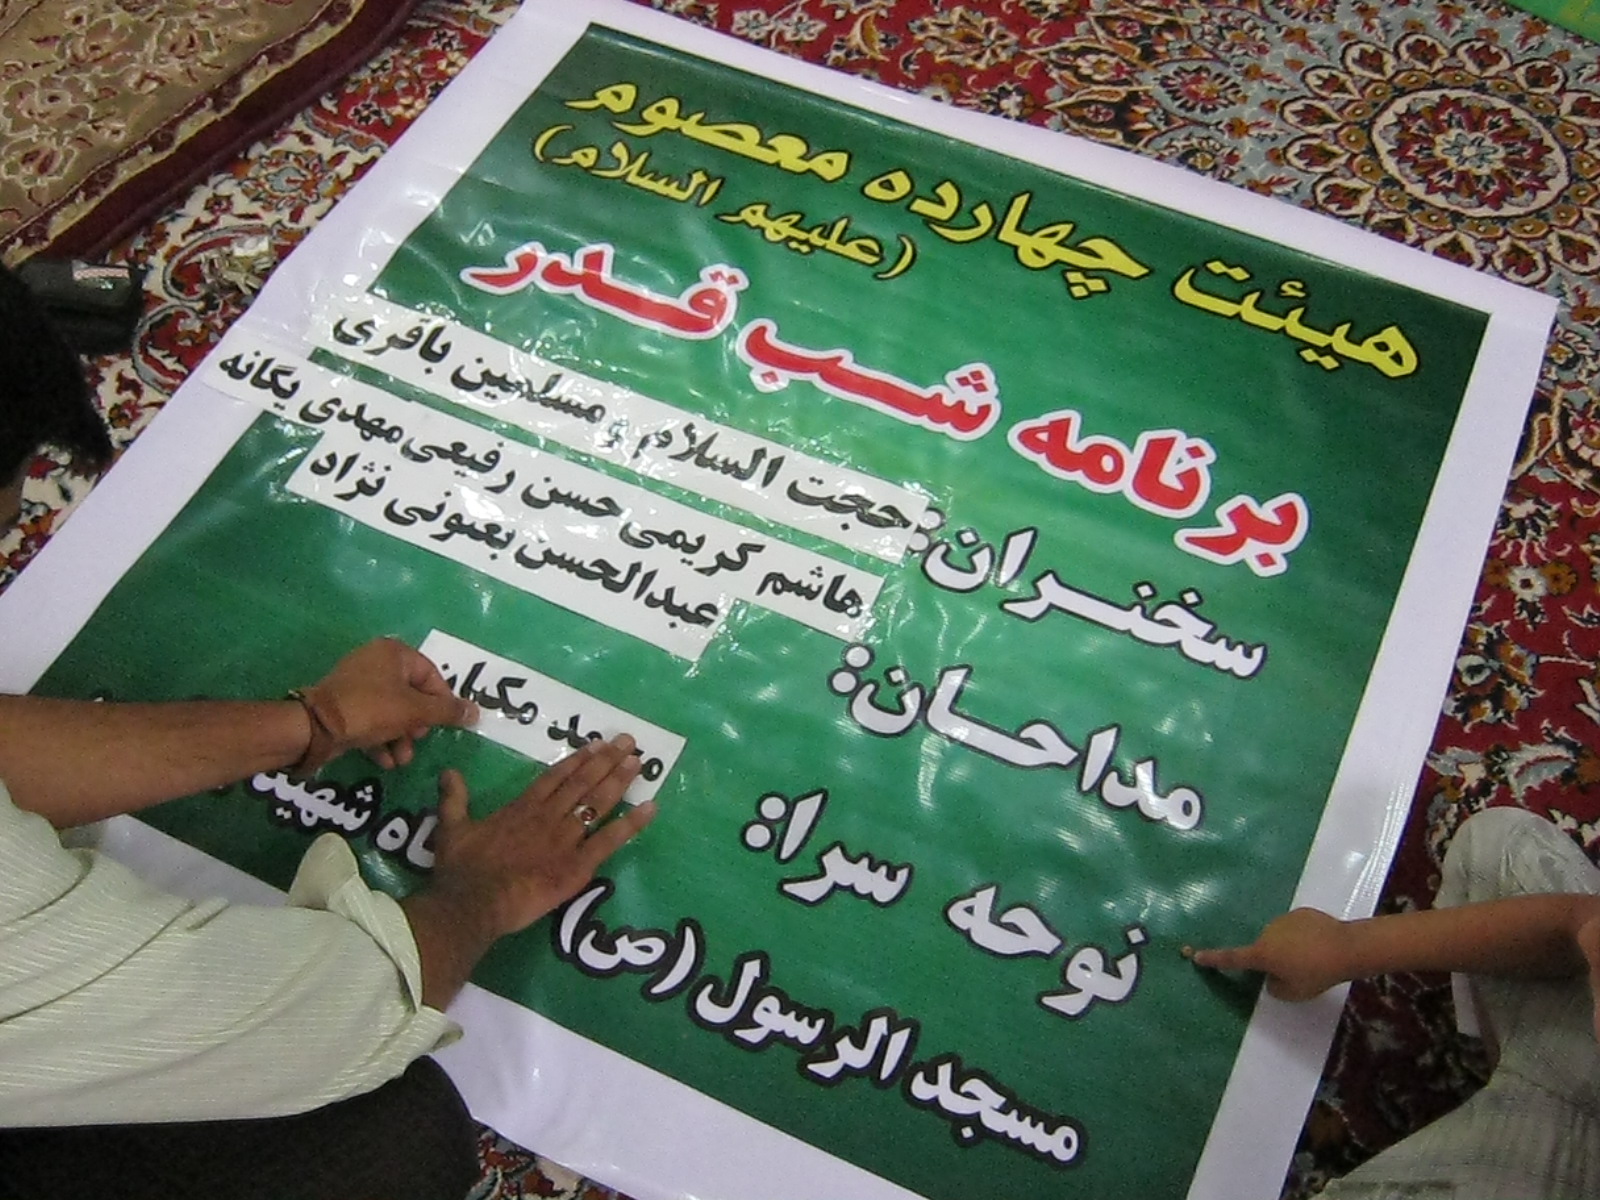 هیئت چهارده معصوم
(علیهم السلام)
برنامه شب قدر
سخنران: حجت السلام و مسلمین باقری
مداحان: هاشم کریمی حسن رفیعی مهدی یگانه
عبدالحسن بعنونی نژاد
نوحه سرا: محمد مکیان
مسجد الرسول (ص) شهید